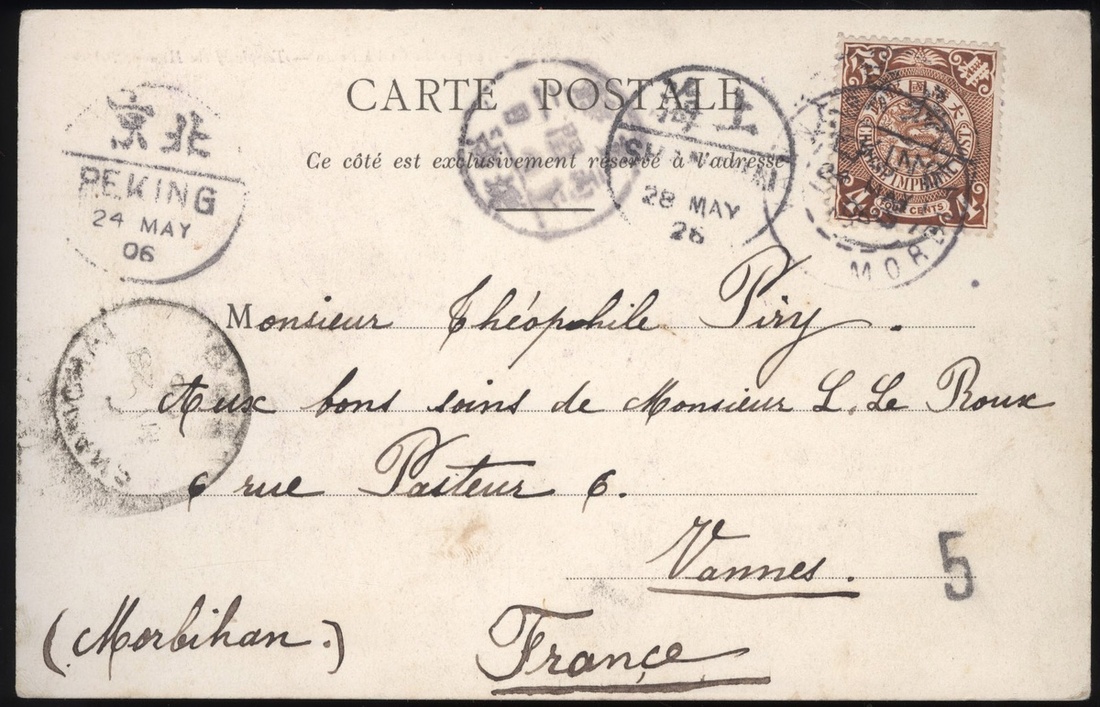 CARTE POSTALE
Ce côté est exclusivement réservé à l'adresse
北京
PEKING
24 MAY
06
上
28 MAY
26
CHINESE IMPERIAL POST
FOUR CENTS
MORB
Monsieur Théophile Piry.
Aux bons soins de Monsieur L. Le Roux
6 rue Pasteur 6.
Vannes.
(Morbihan.)
France
5
SHANGHAI